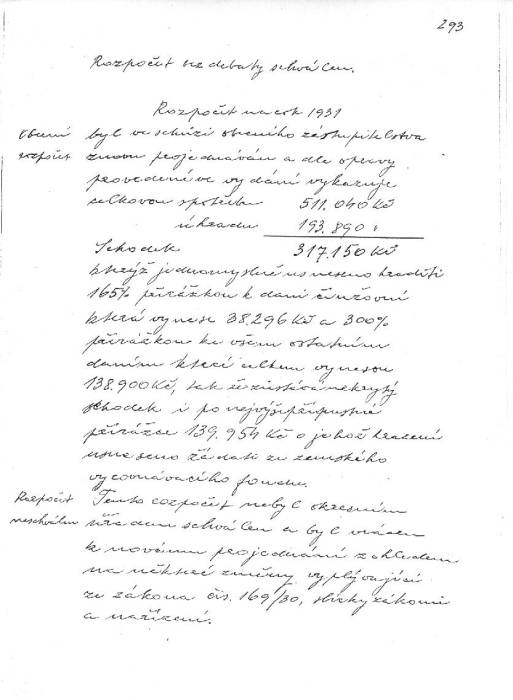 293
Rozpočet bez debaty schválen.
Rozpočet na rok 1931
Obecní rozpočet
byl ve schůzi obecního zastupitelstva
znovu projednáván a dle opravy
provedené ve vydání vykazuje
celkovou spotřebu 511.040 Kč
úhradu 193.890 "
Schodek 317.150 Kč
kterýž jednomyslně usneseno hraditi
165% přirážkou k dani činžovní
která vynese 38.296 Kč a 300%
přirážkou ke všem ostatním
daním kteréž úhrnem vynesou
138.900 Kč, tak že zůstává nekrytý
schodek i po nejvýš přípustné
přirážce 139.954 Kč o jehož hrazení
usneseno žádati ze zemského
vyrovnávacího fondu.
Rozpočet neschválen
Tento rozpočet nebyl okresním
úřadem schválen a byl vrácen
k novému projednání z ohledem
na některé změny vyplývající
ze zákona čís. 169/30, sbírky zákonů
a nařízení.